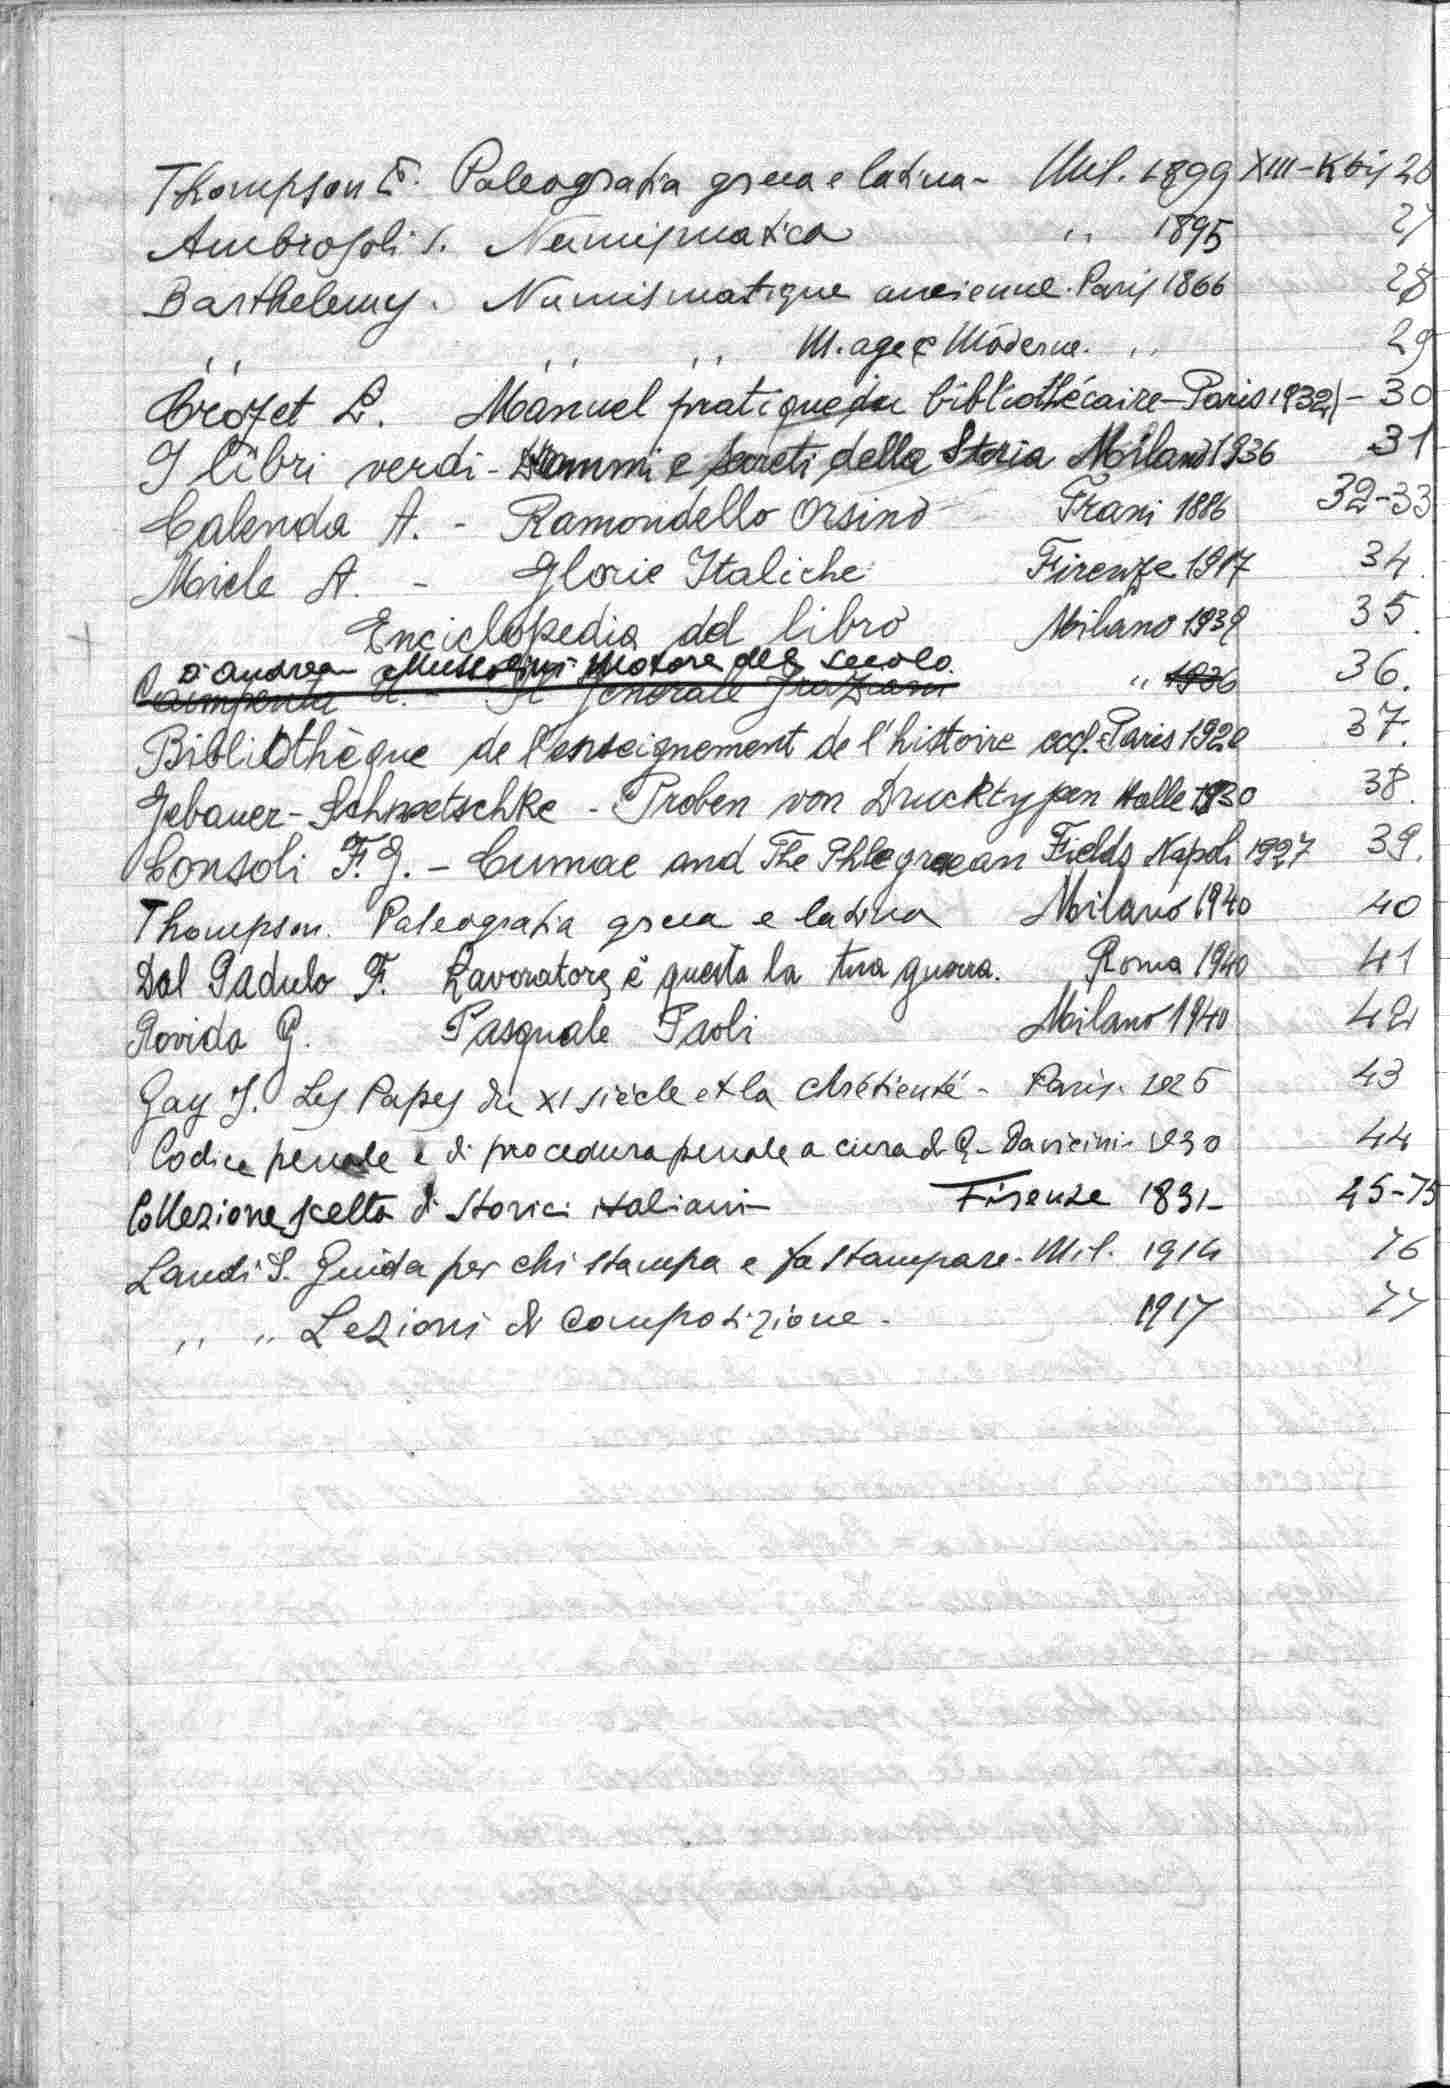 Thompson E. Paleografia greca e latina - Mil. 1899 XIII-K bis 26
Ambrosoli S. Numismatica ,, 1895 27
Barthelemy. Numismatique ancienne. Paris 1866 28
,, ,, ,, M. age e Moderne. ,, 29
Crozet L. Manuel pratique du bibliothécaire - Paris 1932 - 30
I libri verdi - Drammi e secreti della Storia Milano 1936 31
Calenda A. - Ramondello Orsino Trani 1886 32-33
Miele A. - Glorie Italiche Firenze 1917 34.
Enciclopedia del libro Milano 1939 35.
D'Andrea Mussolini Motore del secolo.
A. - Il generale Graziani ,, 1936 36.
Bibliothèque de l'enseignement de l'histoire eccl. Paris 1920 37.
Gebauer-Schwetschke - Proben von Drucktypen Halle 1930 38.
Consoli F. G. - Cumae and The Phlegraean Fields Napoli 1927 39.
Thompson. Paleografia greca e latina Milano 1940 40
Dal Padulo F. Lavoratore, è questa la tua guerra. Roma 1940 41
Rovida G. Pasquale Paoli Milano 1940 42
Gay J. Les Papes du XI siècle et la chrétienté - Paris. 1926 43
Codice penale e di procedura penale a cura di G. - 1930 44
Collezione scelta di storici italiani - Firenze 1831 - 45-75
Landi S. Guida per chi stampa e fa stampare - Mil. 1914 76
,, ,, Lezioni di composizione - 1917 77